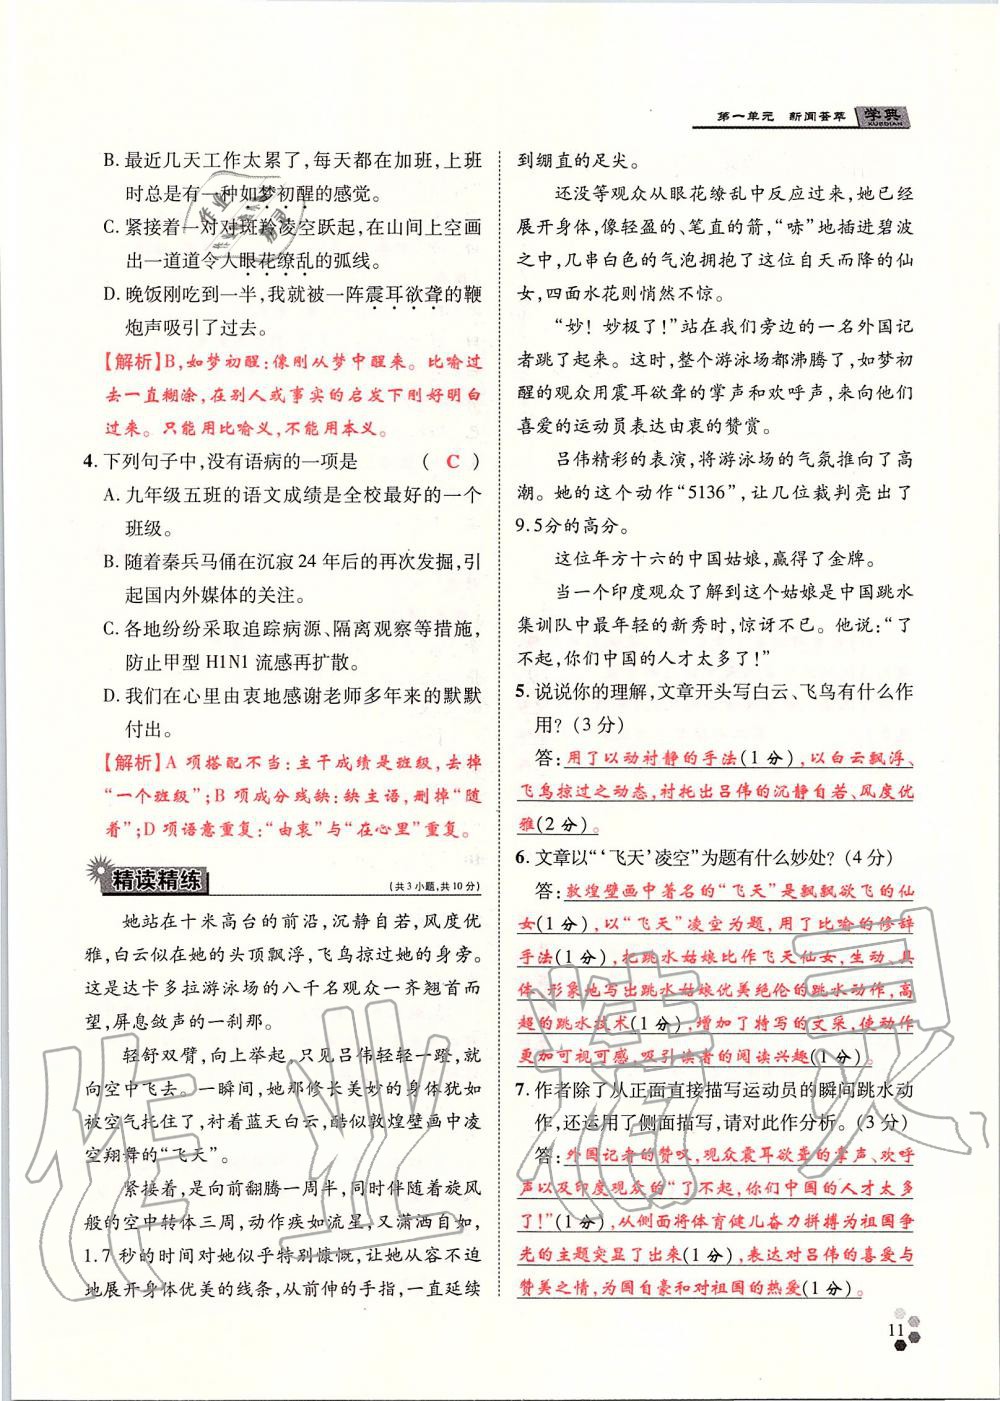 第一单元 新闻荟萃 学典
XUEDIAN
B. 最近几天工作太累了,每天都在加班,上班
时总是有一种如梦初醒的感觉。
C. 紧接着一对对斑羚凌空跃起,在山间上空画
出一道道令人眼花缭乱的弧线。
D. 晚饭刚吃到一半,我就被一阵震耳欲聋的鞭
炮声吸引了过去。
【解析】B,如梦初醒:像刚从梦中醒来。比喻过
去一直糊涂,在别人或事实的启发下刚好明白
过来。只能用比喻义,不能用本义。
4. 下列句子中,没有语病的一项是 ( C )
A. 九年级五班的语文成绩是全校最好的一个
班级。
B. 随着秦兵马俑在沉寂 24 年后的再次发掘,引
起国内外媒体的关注。
C. 各地纷纷采取追踪病源、隔离观察等措施,
防止甲型 H1N1 流感再扩散。
D. 我们在心里由衷地感谢老师多年来的默默
付出。
【解析】A 项搭配不当:主干成绩是班级,去掉
“一个班级”;B 项成分残缺:缺主语,删掉“随
着”;D 项语意重复:“由衷”与“在心里”重复。
精读精练 (共 3 小题,共 10 分)
她站在十米高台的前沿,沉静自若,风度优
雅,白云似在她的头顶飘浮,飞鸟掠过她的身旁。
这是达卡多拉游泳场的八千名观众一齐翘首而
望,屏息敛声的一刹那。
轻舒双臂,向上举起。只见吕伟轻轻一蹬,就
向空中飞去。一瞬间,她那修长美妙的身体犹如
被空气托住了,衬着蓝天白云,酷似敦煌壁画中凌
空翔舞的“飞天”。
紧接着,是向前翻腾一周半,同时伴随着旋风
般的空中转体三周,动作疾如流星,又潇洒自如,
1.7 秒的时间对她似乎特别慷慨,让她从容不迫
地展开身体优美的线条,从前伸的手指,一直延续
到绷直的足尖。
还没等观众从眼花缭乱中反应过来,她已经
展开身体,像轻盈的、笔直的箭,“哧”地插进碧波
之中,几串白色的气泡拥抱了这位自天而降的仙
女,四面水花则悄然不惊。
“妙！妙极了！”站在我们旁边的一名外国记
者跳了起来。这时,整个游泳场都沸腾了,如梦初
醒的观众用震耳欲聋的掌声和欢呼声,来向他们
喜爱的运动员表达由衷的赞赏。
吕伟精彩的表演,将游泳场的气氛推向了高
潮。她的这个动作“5136”,让几位裁判亮出了
9.5分的高分。
这位年方十六的中国姑娘,赢得了金牌。
当一个印度观众了解到这个姑娘是中国跳水
集训队中最年轻的新秀时,惊讶不已。他说:“了
不起,你们中国的人才太多了！”
5. 说说你的理解,文章开头写白云、飞鸟有什么作
用？(3 分)
答:用了以动衬静的手法(1 分),以白云飘浮、
飞鸟掠过之动态,衬托出吕伟的沉静自若、风度优
雅(2 分)。
6. 文章以“‘飞天’凌空”为题有什么妙处？(4 分)
答:敦煌壁画中著名的“飞天”是飘飘欲飞的仙
女(1 分),以“飞天”凌空为题,用了比喻的修辞
手法(1 分),把跳水姑娘比作飞天仙女,生动、具
体、形象地写出跳水姑娘优美绝伦的跳水动作,高
超的跳水技术(1 分),增加了特写的文采,使动作
更加可视可感,吸引读者的阅读兴趣(1 分)。
7. 作者除了从正面直接描写运动员的瞬间跳水动
作,还运用了侧面描写,请对此作分析。(3 分)
答:外国记者的赞叹,观众震耳欲聋的掌声、欢呼
声以及印度观众的“了不起,你们中国的人才太多
了！”(1 分),从侧面将体育健儿奋力拼搏为祖国争
光的主题突显了出来(1 分),表达对吕伟的喜爱与
赞美之情,为国自豪和对祖国的热爱(1 分)。
11
作业精灵